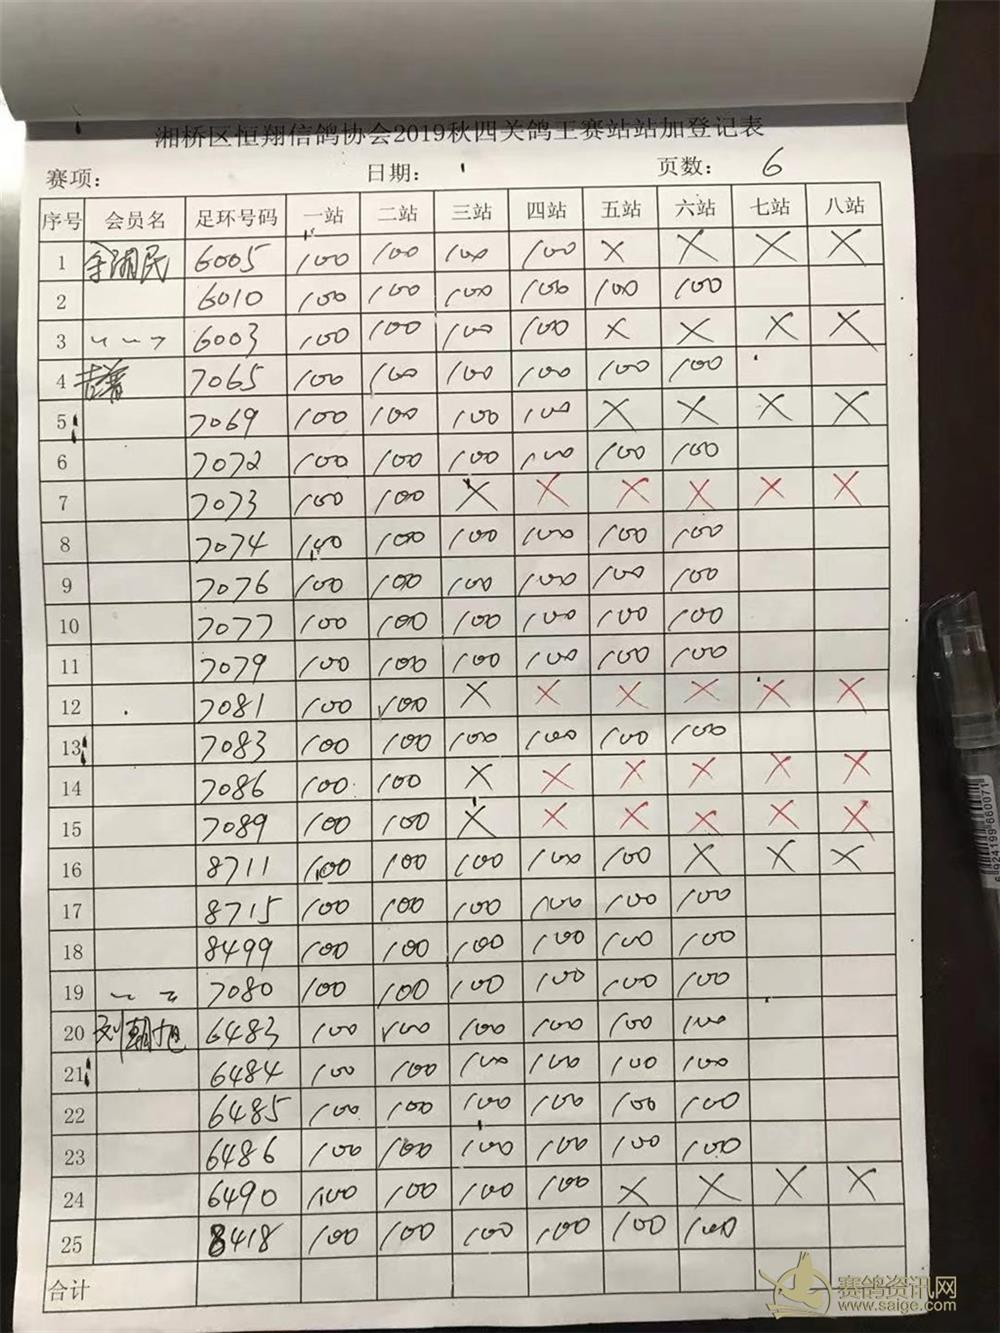 湘桥区恒翔信鸽协会2019秋四关鸽王赛站站加登记表
赛项: 日期: 页数: 6
序号 会员名 足环号码 一站 二站 三站 四站 五站 六站 七站 八站
1 余湘民 6005 100 100 100 100 X X X X
2 6010 100 100 100 100 100 100
3 6003 100 100 100 100 X X X X
4 7065 100 100 100 100 100 100
5 7069 100 100 100 100 X X X X
6 7072 100 100 100 100 100 100
7 7073 100 100 X X X X X X
8 7074 100 100 100 100 100 100
9 7076 100 100 100 100 100 100
10 7077 100 100 100 100 100 100
11 7079 100 100 100 100 100 100
12 7081 100 100 X X X X X X
13 7083 100 100 100 100 100 100
14 7086 100 100 X X X X X X
15 7089 100 100 X X X X X X
16 8711 100 100 100 100 100 X X X
17 8715 100 100 100 100 100 100
18 8499 100 100 100 100 100 100
19 7080 100 100 100 100 100 100
20 刘朝旭 6483 100 100 100 100 100 100
21 6484 100 100 100 100 100 100
22 6485 100 100 100 100 100 100
23 6486 100 100 100 100 100 100
24 6490 100 100 100 100 X X X X
25 8418 100 100 100 100 100 100
合计
6924199660071
赛鸽资讯网
www.saige.com